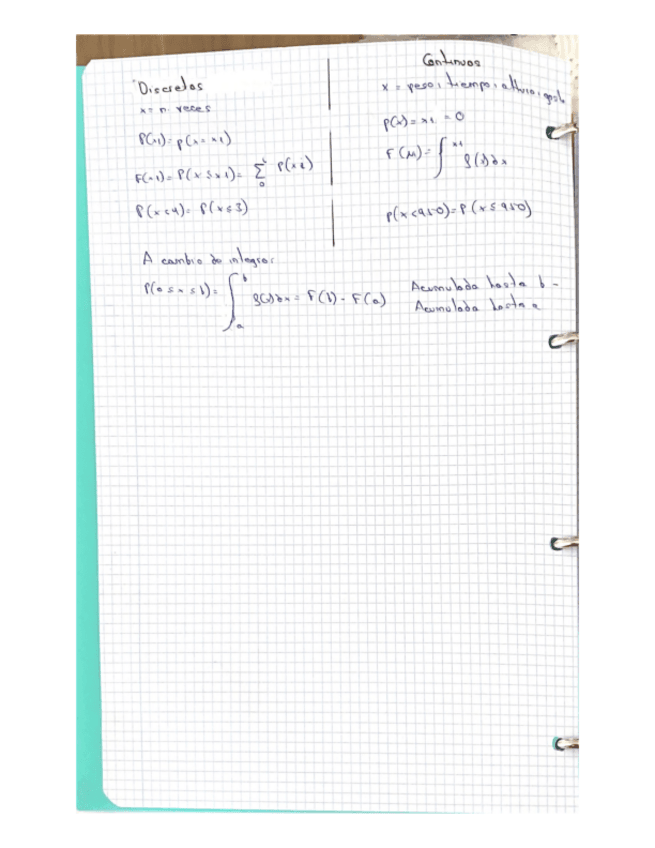 Discretas
x = n. veces
P(x1) = p(x = x1)
F(x1) = P(x ≤ x1) = Σ P(xi)
0
P(x < 4) = P(x ≤ 3)
Continuas
x = peso, tiempo, altura,
p(x) = x1 = 0
F(x1) = ∫ x1 f(x)dx
p(x < 950) = P(x ≤ 950)
A cambio de integrar:
P(a ≤ x ≤ b) = ∫ b a f(x)dx = F(b) - F(a)
Acumulada hasta b -
Acumulada hasta a